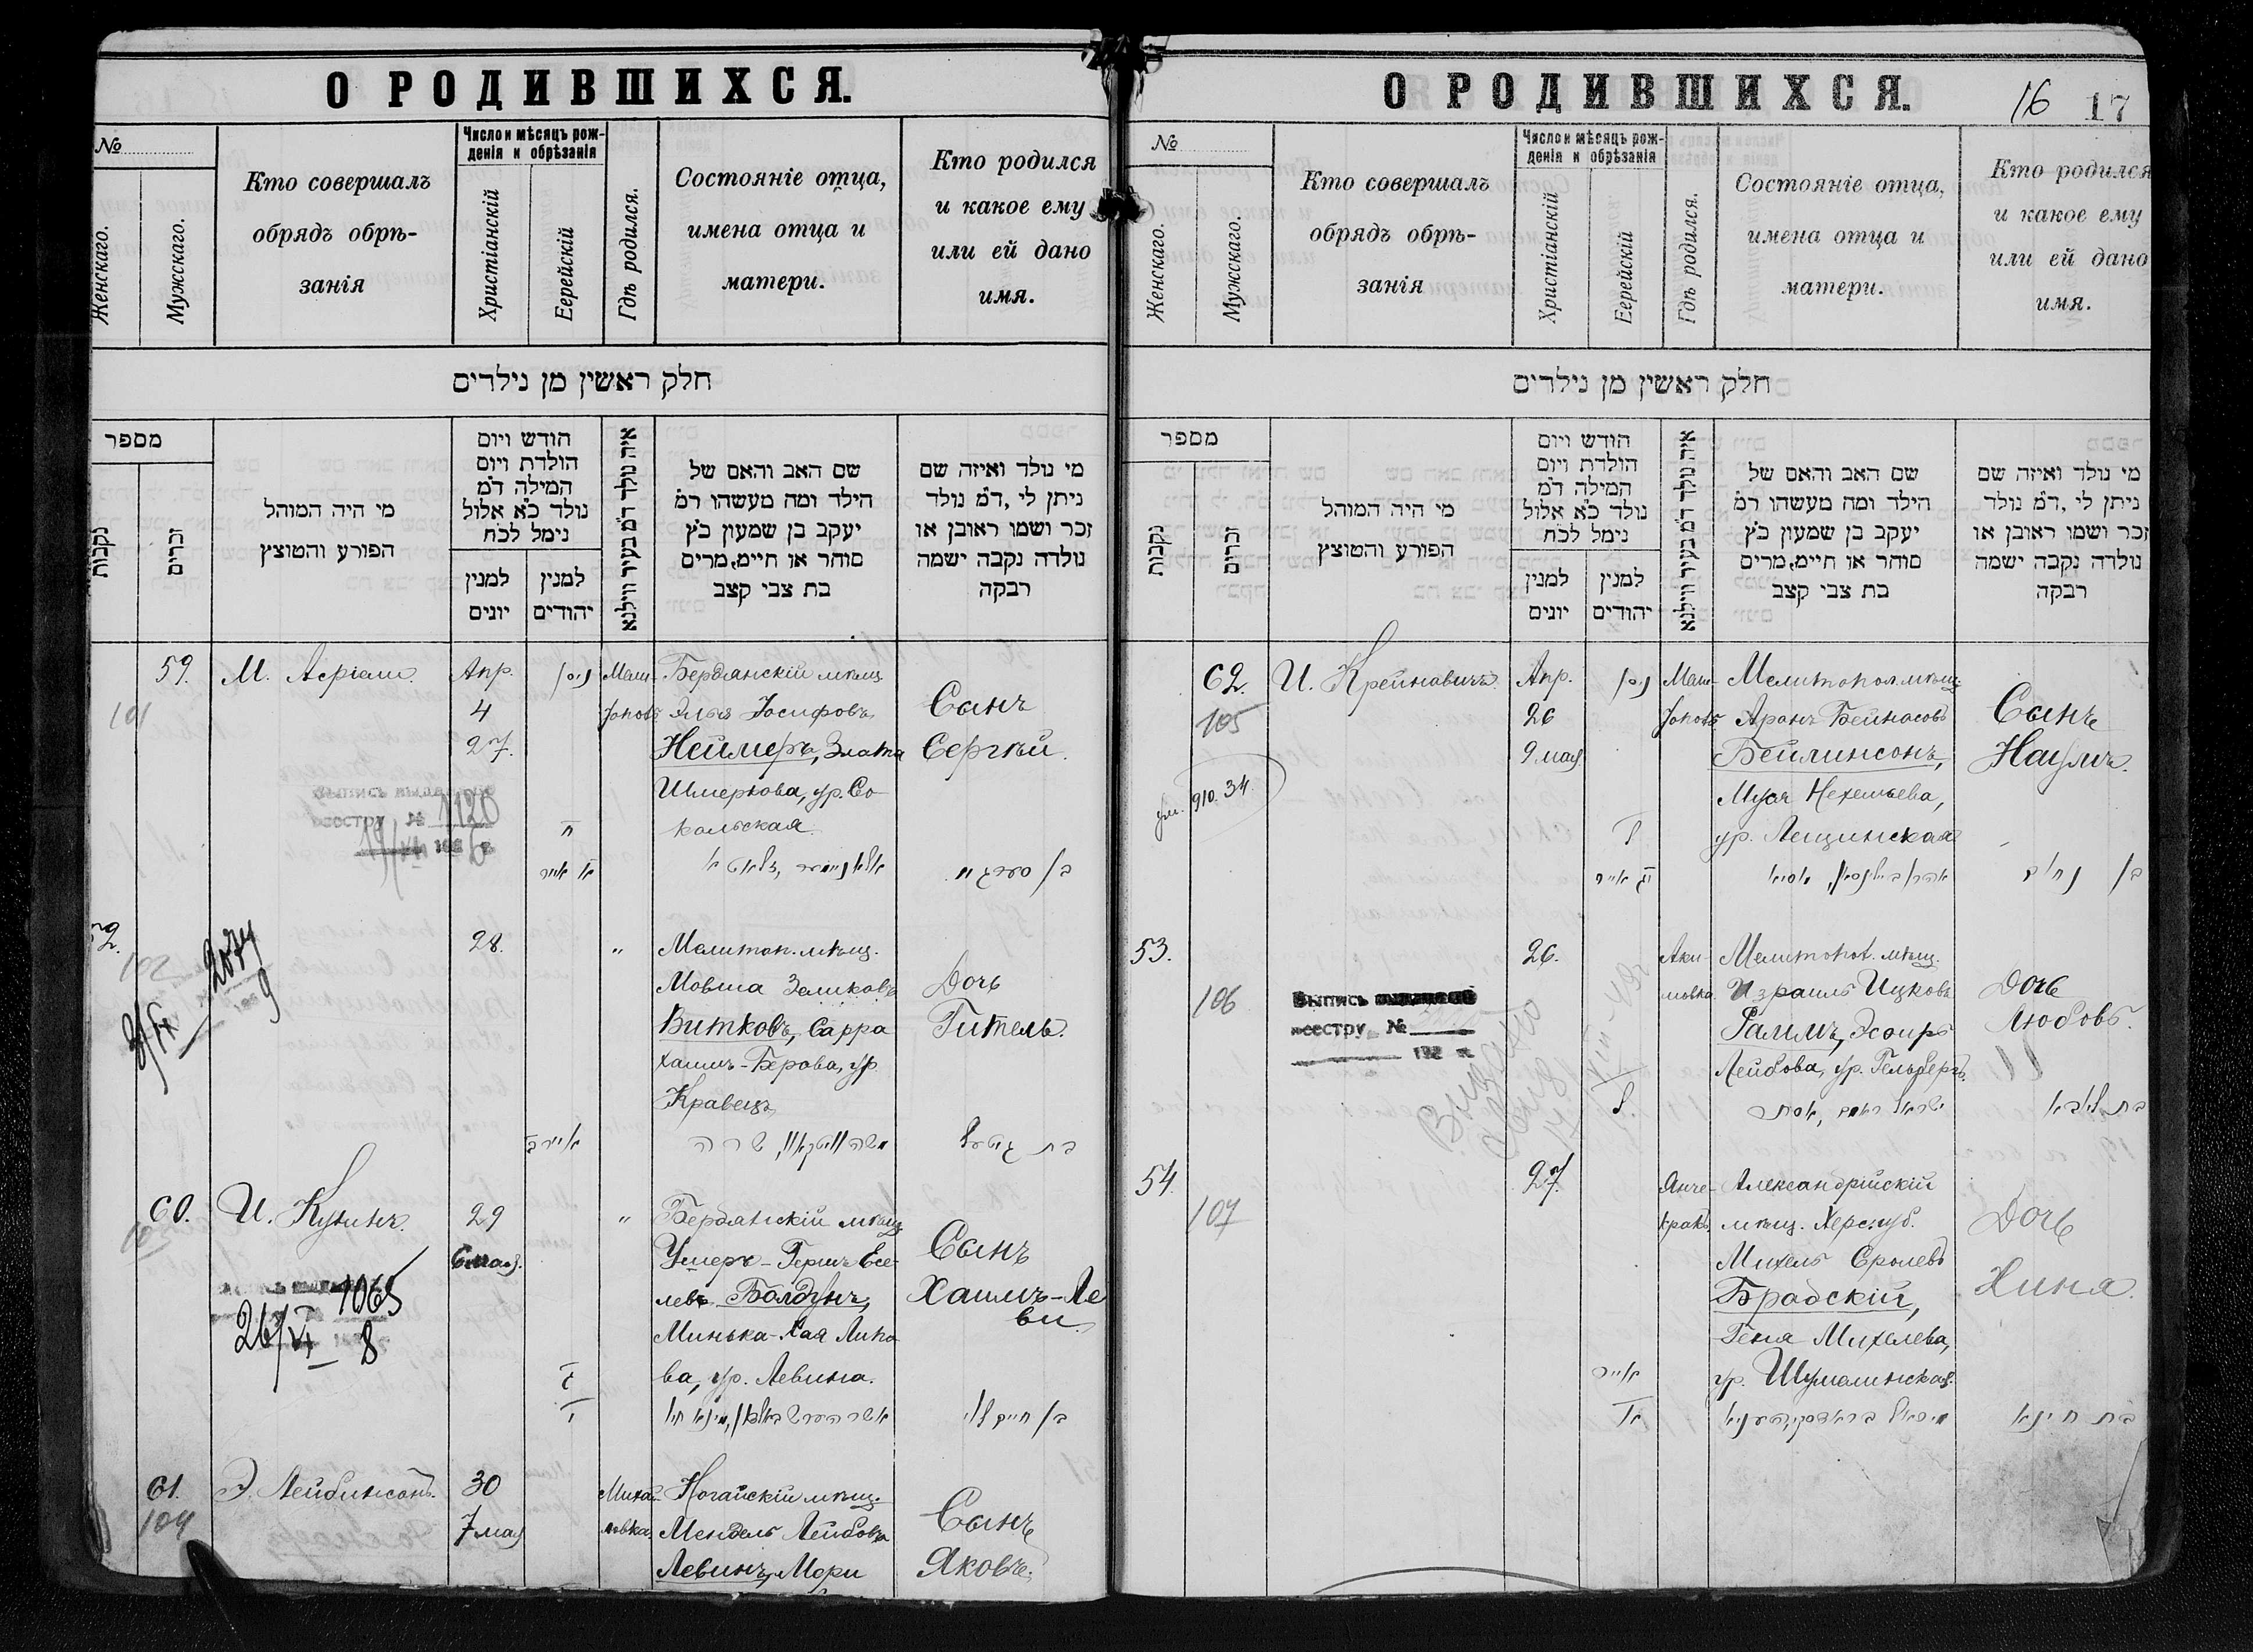 О РОДИВШИХСЯ.
№
Женскаго.
Мужскаго.
Кто совершалъ
обрядъ обрѣ-
занія
Число и мѣсяцъ рож-
денія и обрѣзанія
Христіанскій
Еерейскій
Гдѣ родился.
Состояніе отца,
имена отца и
матери.
Кто родился
и какое ему
или ей дано
имя.
חלק ראשין מן נילדים
מספר
נקבות
זכרים
מי היה המוהל
הפורע והטוצץ
הודש ויום
הולדת ויום
המילה ד״מ
נולד כ״א אלול
נימל לכ״ח
למנין
יונים
למנין
יהודים
איה נולד ד״מ בעיר ווילנא
שם האב והאם של
הילד ומה מעשהו ר״מ
יעקב בן שמעון כ״ץ
סוחר או חיימ,מרים
בת צבי קצב
מי נולד ואיזה שם
ניתן לי ,ד״מ נולד
זכר ושמו ראובן או
נולדה נקבה ישמה
רבקה
59.
101
М. Асріели.
Апр.
4
27.
ניסן
ח
א אייר
Мели-
тополь
Бердянскій мѣщ.
Элья Іосифовъ
Неймеръ, Злата
Шмеркова, ур. Со-
кольская.
Сынъ
Сергѣй.
1120
52.
102
2074
9
28.
"
Мелитоп. мѣщ.
Мовша Зеликовъ
Витковъ, Сарра
Хаимъ-Берова, ур.
Кравецъ
Дочь
Гитель.
60.
103
И. Кунинъ.
29
6 мая.
"
Бердянскій мѣщ.
Ушеръ-Гершъ Есе-
левъ Болдунъ,
Минька-Хая Липо
ва, ур. Левина.
Сынъ
Хаимъ-Ле
ви.
1065
26/VI 8
61.
104
Э. Лейбинсонъ.
30
7 мая
Михай-
ловка.
Ногайскій мѣщ.
Мендель Лейбовъ
Левинъ, Мери
Сынъ
Яковъ.
О РОДИВШИХСЯ.
16 17
№
Женскаго.
Мужскаго.
Кто совершалъ
обрядъ обрѣ-
занія
Число и мѣсяцъ рож-
денія и обрѣзанія
Христіанскій
Еерейскій
Гдѣ родился.
Состояніе отца,
имена отца и
матери.
Кто родился
и какое ему
или ей дано
имя.
חלק ראשין מן נילדים
מספר
נקבות
זכרים
מי היה המוהל
הפורע והטוצץ
הודש ויום
הולדת ויום
המילה ד״מ
נולד כ״א אלול
נימל לכ״ח
למנין
יונים
למנין
יהודים
איה נולד ד״מ בעיר ווילנא
שם האב והאם של
הילד ומה מעשהו ר״מ
יעקב בן שמעון כ״ץ
סוחר או חיימ,מרים
בת צבי קצב
מי נולד ואיזה שם
ניתן לי ,ד״מ נולד
זכר ושמו ראובן או
נולדה נקבה ישמה
רבקה
62.
105
И. Крейновичъ.
Апр.
26
9 мая
ניסן
ל
יג אייר
Мели-
тополь
Мелитопол. мѣщ.
Аронъ Бейнасовъ
Бейлинсонъ,
Муся Нехемьева,
ур. Лещинская
Сынъ
Наумъ.
ум. 910. 34.
בן נחום
53.
106
Выпись
реестру №
192 г.
26.
ל.
Аки-
мовка
Мелитопол. мѣщ.
Израиль Ицковъ
Раимъ, Эсѳирь
Лейбова, ур. Гельберъ.
Дочь
Любовь.
בת ליבא
54.
107
27.
אייר
א
Янче-
кракъ
Александрійскій
мѣщ. Херс. губ.
Михель Сролевъ
Бродскій,
Геня Михелева,
ур. Шумалинская.
Дочь
Хиня.
בת חינא